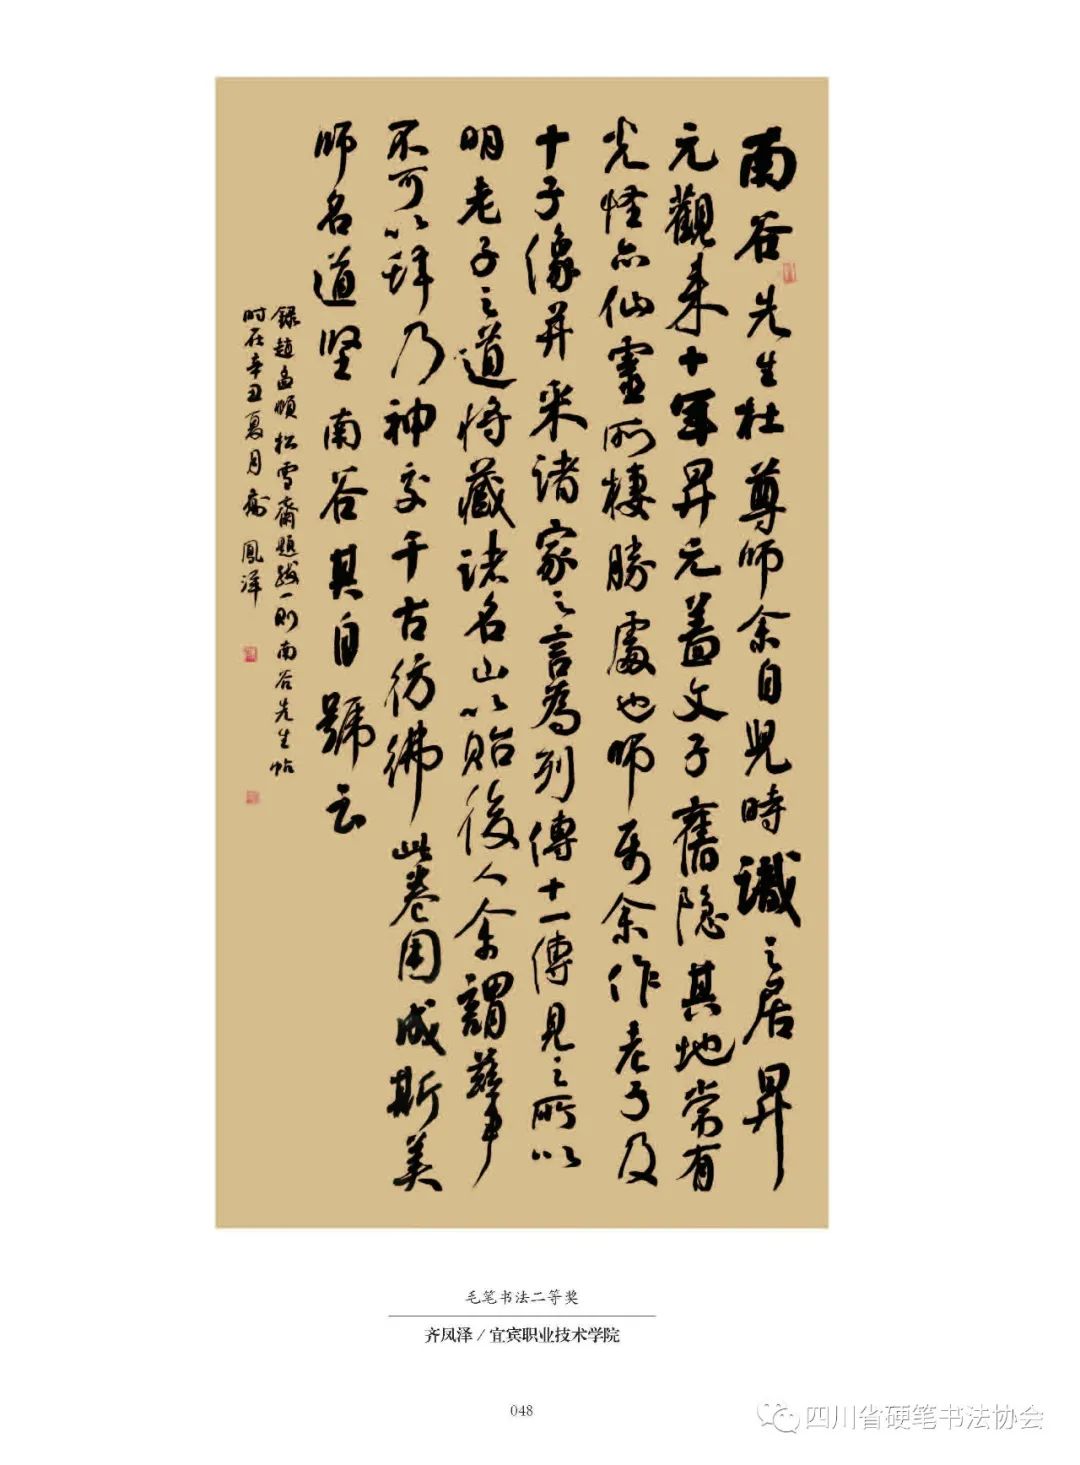 南谷先生杜尊师余自儿時識之居昇
元觀来十年昇元盖文子舊隐其地常有
光怪亦仙靈所棲勝處也师属余作老子及
十子像并采诸家之言為列傳十一傳見之所以
明老子之道将藏诸名山以貽後人余謂兹事
不可以辞乃神交千古彷彿此卷用成斯美
师名道坚南谷其自號云
録趙孟頫松雪齋題跋一则南谷先生帖
时在辛丑夏月齊鳳泽
毛笔书法二等奖
齐凤泽 / 宜宾职业技术学院
048
四川省硬笔书法协会